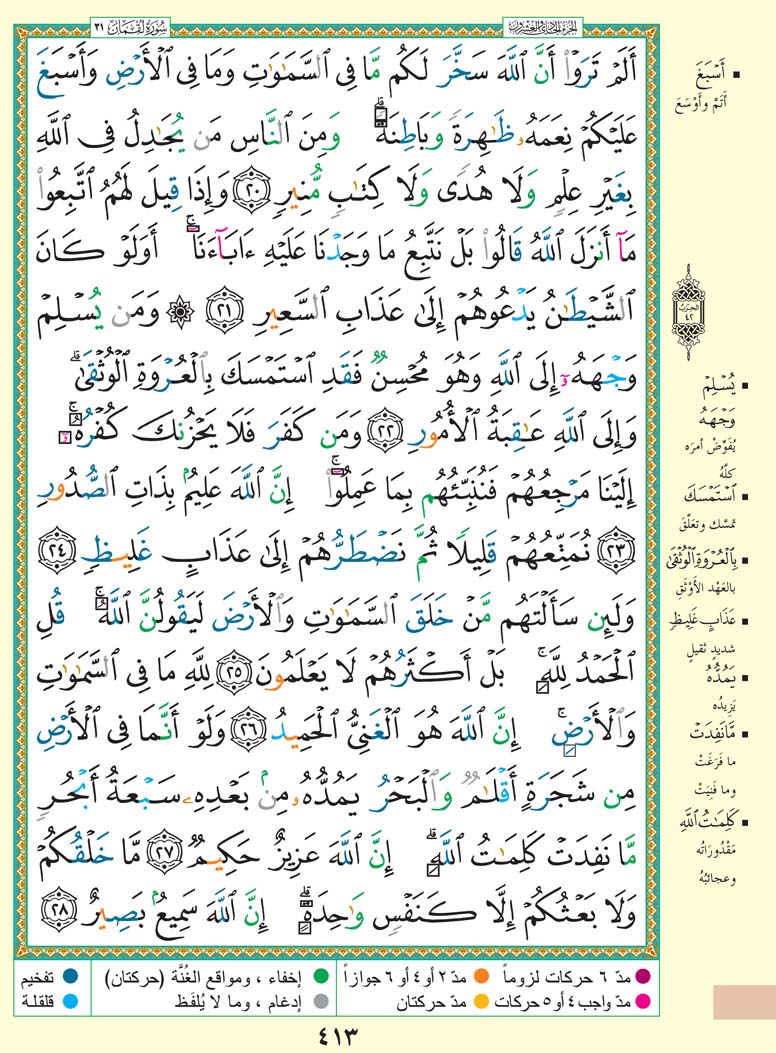 سُورَةُ لُقْمَان ٣١
الجزء الحادي والعشرون
أَلَمْ تَرَوْا۟ أَنَّ ٱللَّهَ سَخَّرَ لَكُم مَّا فِى ٱلسَّمَٰوَٰتِ وَمَا فِى ٱلْأَرْضِ وَأَسْبَغَ
عَلَيْكُمْ نِعَمَهُۥ ظَٰهِرَةً وَبَاطِنَةً ۗ وَمِنَ ٱلنَّاسِ مَن يُجَٰدِلُ فِى ٱللَّهِ
بِغَيْرِ عِلْمٍ وَلَا هُدًى وَلَا كِتَٰبٍ مُّنِيرٍ ٢٠ وَإِذَا قِيلَ لَهُمُ ٱتَّبِعُوا۟
مَآ أَنزَلَ ٱللَّهُ قَالُوا۟ بَلْ نَتَّبِعُ مَا وَجَدْنَا عَلَيْهِ ءَابَآءَنَآ ۚ أَوَلَوْ كَانَ
ٱلشَّيْطَٰنُ يَدْعُوهُمْ إِلَىٰ عَذَابِ ٱلسَّعِيرِ ٢١ ۞ وَمَن يُسْلِمْ
وَجْهَهُۥٓ إِلَى ٱللَّهِ وَهُوَ مُحْسِنٌ فَقَدِ ٱسْتَمْسَكَ بِٱلْعُرْوَةِ ٱلْوُثْقَىٰ ۗ
وَإِلَى ٱللَّهِ عَٰقِبَةُ ٱلْأُمُورِ ٢٢ وَمَن كَفَرَ فَلَا يَحْزُنكَ كُفْرُهُۥٓ ۚ
إِلَيْنَا مَرْجِعُهُمْ فَنُنَبِّئُهُم بِمَا عَمِلُوٓا۟ ۚ إِنَّ ٱللَّهَ عَلِيمٌۢ بِذَاتِ ٱلصُّدُورِ
٢٣ نُمَتِّعُهُمْ قَلِيلًا ثُمَّ نَضْطَرُّهُمْ إِلَىٰ عَذَابٍ غَلِيظٍ ٢٤
وَلَئِن سَأَلْتَهُم مَّنْ خَلَقَ ٱلسَّمَٰوَٰتِ وَٱلْأَرْضَ لَيَقُولُنَّ ٱللَّهُ ۚ قُلِ
ٱلْحَمْدُ لِلَّهِ ۚ بَلْ أَكْثَرُهُمْ لَا يَعْلَمُونَ ٢٥ لِلَّهِ مَا فِى ٱلسَّمَٰوَٰتِ
وَٱلْأَرْضِ ۚ إِنَّ ٱللَّهَ هُوَ ٱلْغَنِىُّ ٱلْحَمِيدُ ٢٦ وَلَوْ أَنَّمَا فِى ٱلْأَرْضِ
مِن شَجَرَةٍ أَقْلَٰمٌ وَٱلْبَحْرُ يَمُدُّهُۥ مِنۢ بَعْدِهِۦ سَبْعَةُ أَبْحُرٍ
مَّا نَفِدَتْ كَلِمَٰتُ ٱللَّهِ ۗ إِنَّ ٱللَّهَ عَزِيزٌ حَكِيمٌ ٢٧ مَّا خَلْقُكُمْ
وَلَا بَعْثُكُمْ إِلَّا كَنَفْسٍ وَٰحِدَةٍ ۗ إِنَّ ٱللَّهَ سَمِيعٌۢ بَصِيرٌ ٢٨
▪ أَسْبَغَ
أَتَمَّ وأَوْسَعَ
الحِزْبُ
٤٢
▪ يُسْلِمْ
وَجْهَهُ
يُفَوِّضْ أمرَه
كلَّه
▪ ٱسْتَمْسَكَ
تمسَّك وتعلَّق
▪ بِٱلْعُرْوَةِ ٱلْوُثْقَىٰ
بالعَهْدِ الأَوْثَقِ
▪ عَذَابٍ غَلِيظٍ
شديدٍ ثقيلٍ
▪ يَمُدُّهُ
يَزِيدُه
▪ مَّا نَفِدَتْ
ما فَرَغَتْ
وما فَنِيَتْ
▪ كَلِمَٰتُ ٱللَّهِ
مَقْدُورَاتُه
وعجائبُهُ
مدّ ٦ حركات لزوماً
مدّ ٢ أو ٤ أو ٦ جوازاً
إخفاء ، ومواقع الغُنَّة (حركتان)
تفخيم
مدّ واجب ٤ أو ٥ حركات
مدّ حركتان
إدغام ، وما لا يُلفَظ
قلقلة
٤١٣